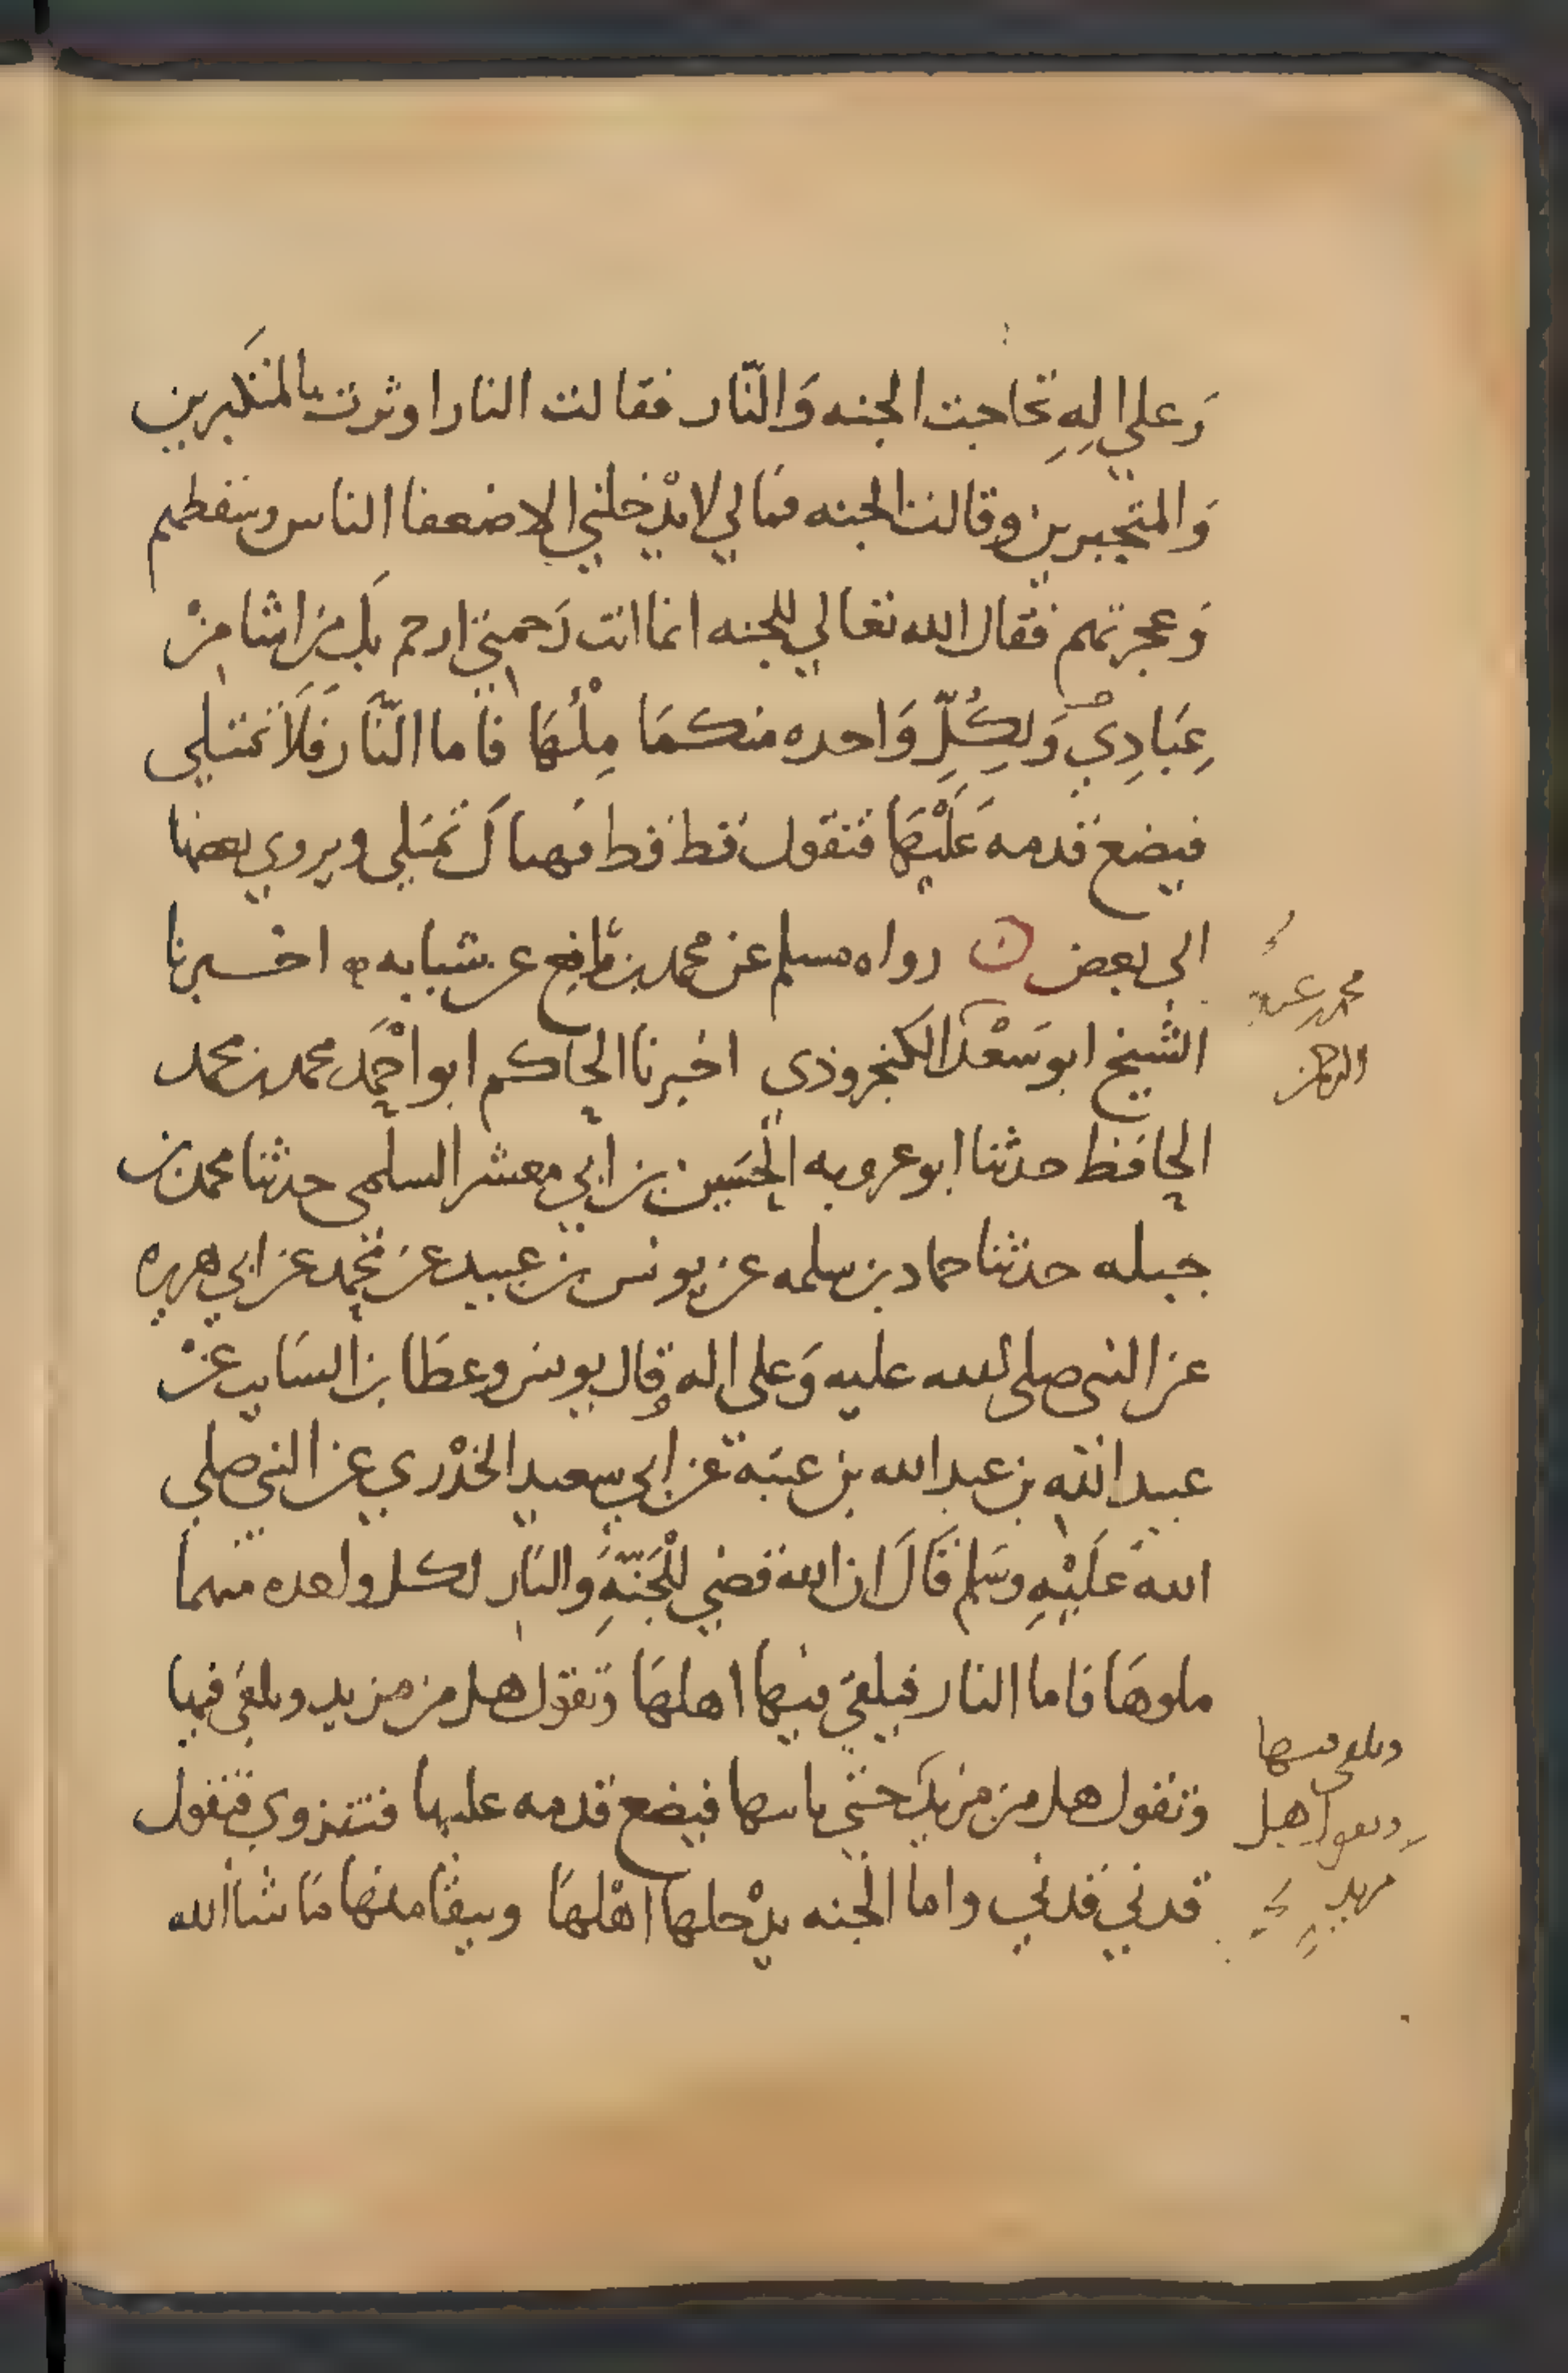 وَعلي الِهِ تحاجت الجنه وَالنَّار فقالت النار اوثرت بالمتَكبرين
وَالمتجبرين وقالت الجنه فمَا لي لا يدْخلني الا ضعفا الناس وسقطهم
وَعجزتهم فقال الله تعالي للجنه انما انت رَحمتي ارحم بكِ مَن اشا مِنْ
عِبَادِي وَلِكُلِّ وَاحده منكمَا مِلْئُهَا فاما النَّار فَلَا تمتلي
فيضع قدمه عَلَيْهَا فتقول قط قط فهناكَ تمتلي ويروي بعضها
الي بعض ن رواه مسلم عن محمد بن رافع عن شبابه ه اخبرنا
الشيخ ابو سَعْد الكنجروذي اخبرنا الحاكم ابو احْمَد محمد بن محمد
الحافظ حدثنا ابو عروبه الحسَين بن ابي معشر السلمي حدثنا محمد بن
جبله حدثنا حماد بن سلمه عن يونس بن عبيد عن محمد عن ابي هريره
عن النبي صلي الله عليه وَعلي اله وقال يونس وعطَا بن السَايب عَنْ
عبيد الله بن عبد الله بن عتبَة عن ابي سعيد الخدْري عن النبي صلي
الله عَلَيْهِ وسَلم قَالَ ان الله قضي للْجَنَّةِ وَالنَّارِ لكل واحده منهما
ملوهَا فاما النار فيلقي فيها اهلهَا وتقول هل من مزيد ويلقي فيها
وتقول هل من مزيد حتي ياتيها فيضع قدمه عليها فتنزوي فتقول
قدني قدني واما الجنه يدْخلها اهْلهَا ويبقا منها مَا شا الله
ويلقي فيها
وتقول هل